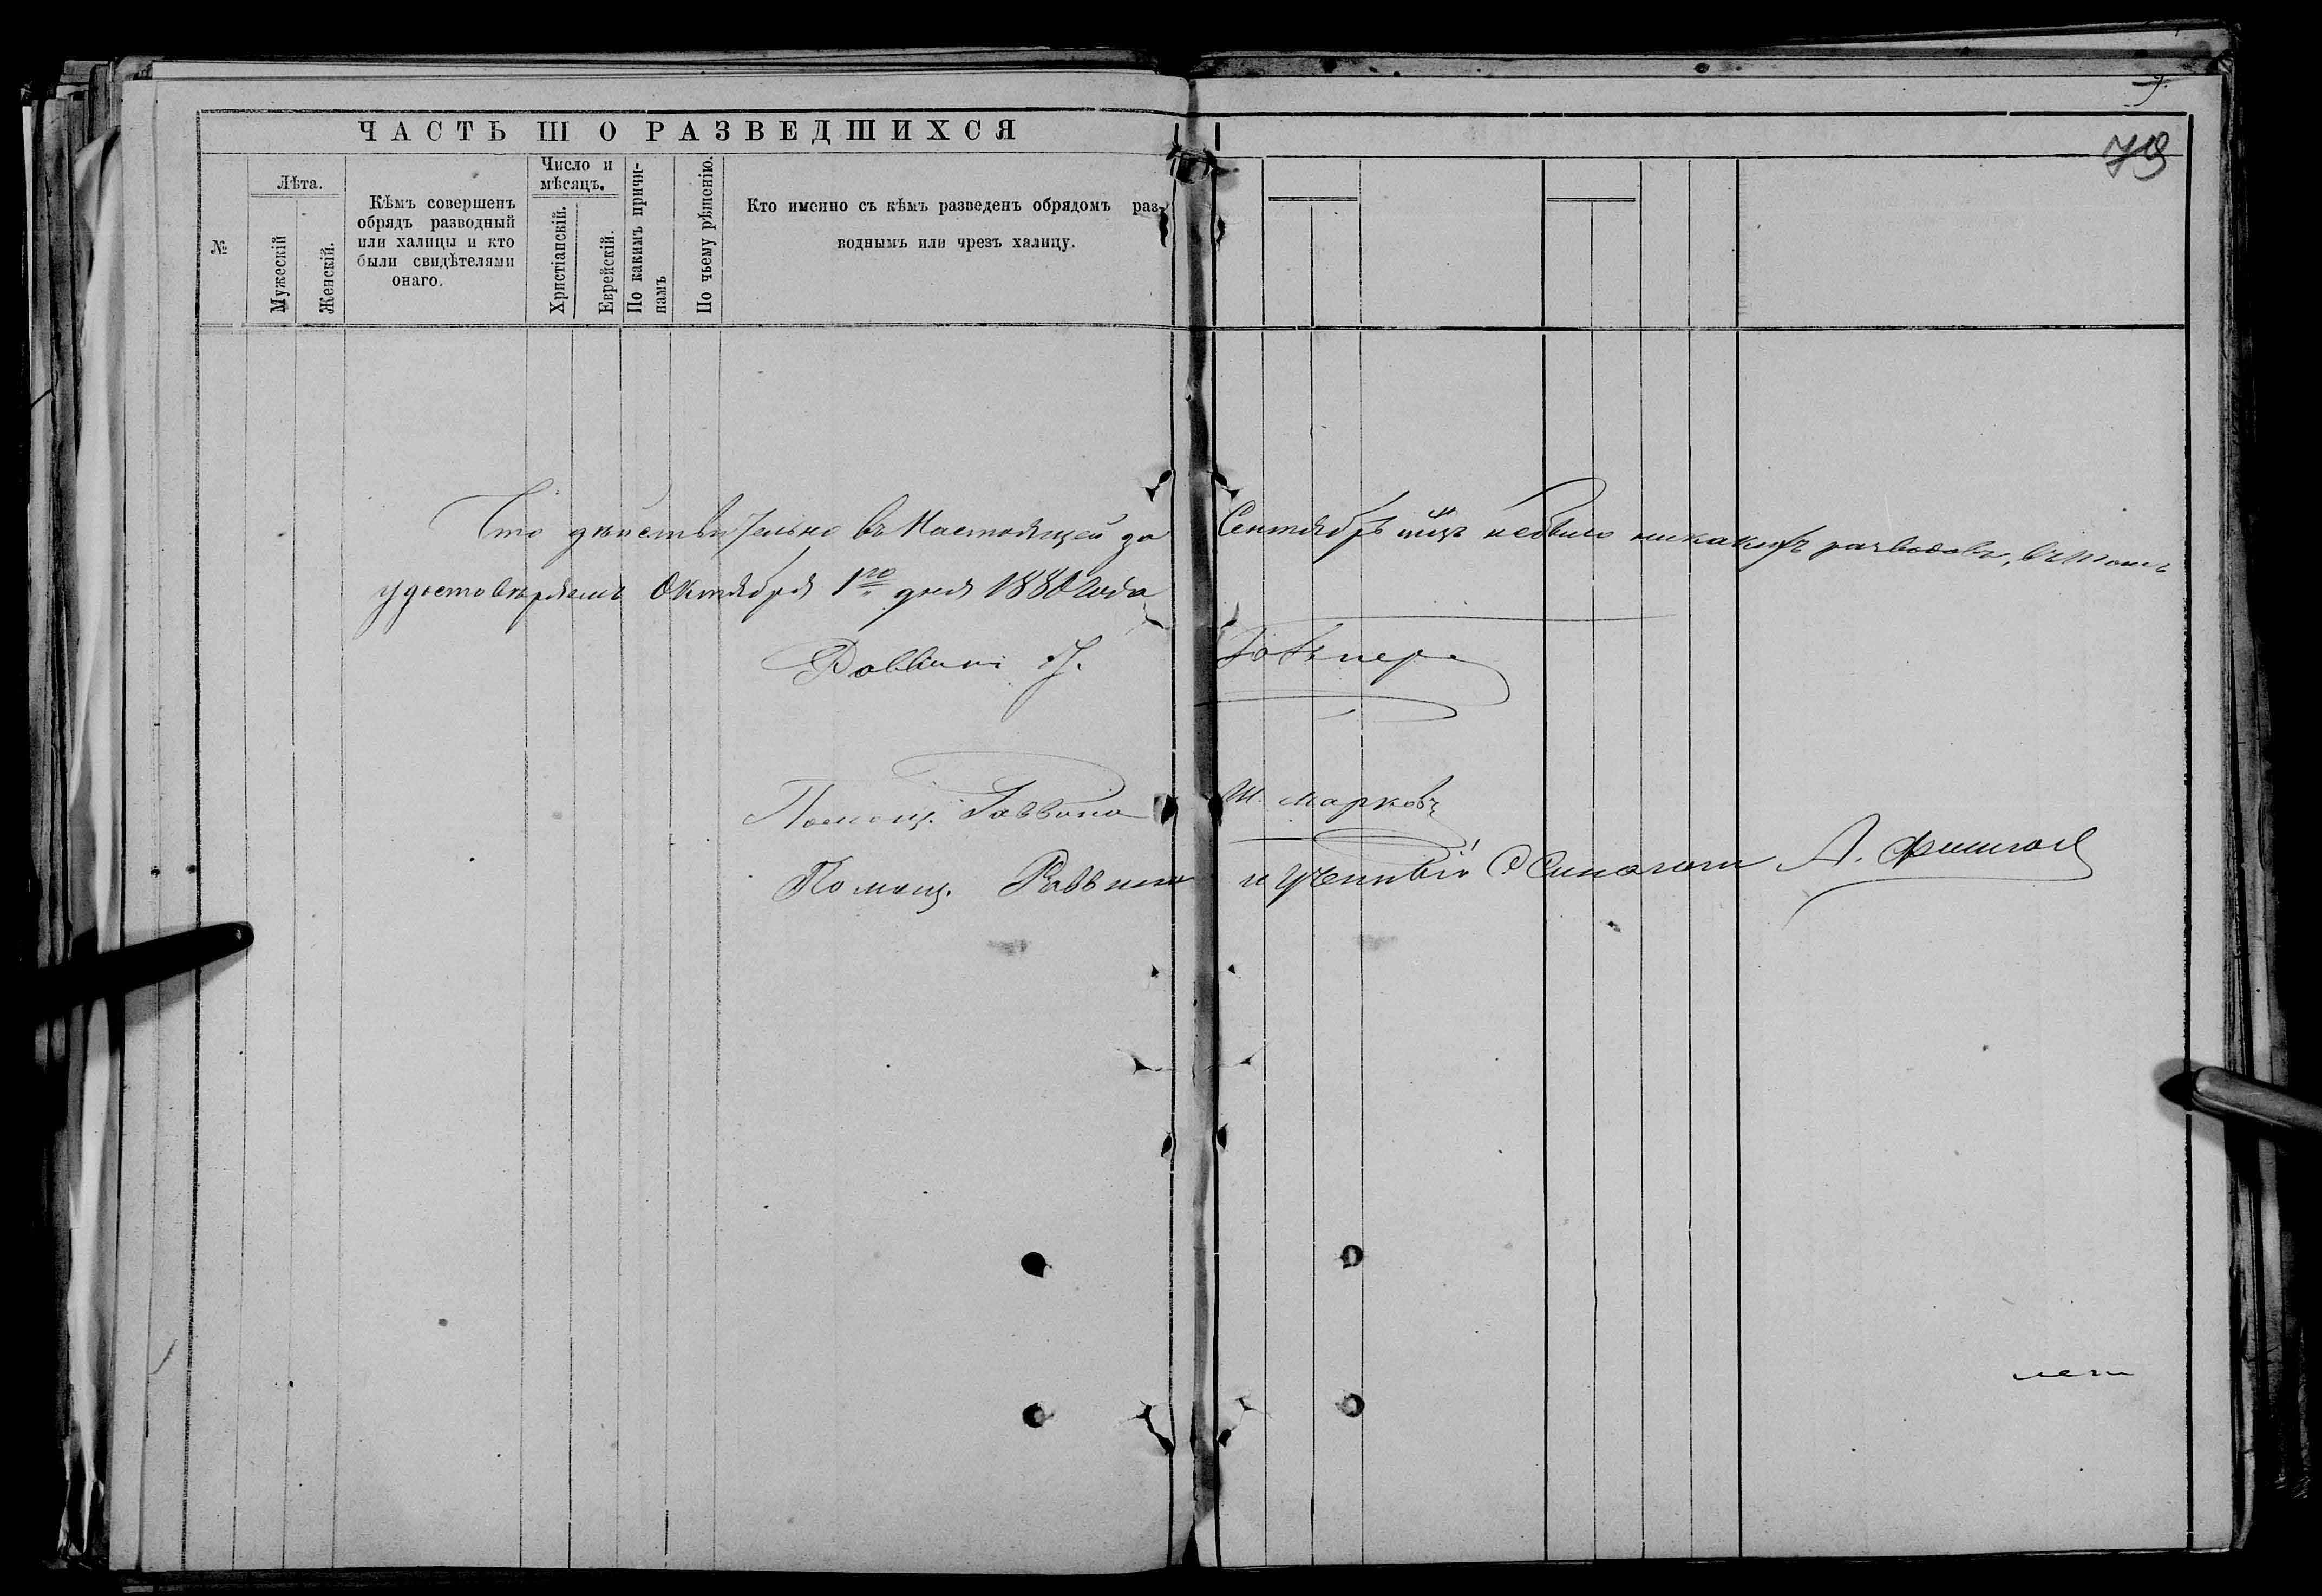 79
ЧАСТЬ III О РАЗВЕДШИХСЯ
№
Лѣта.
Мужескій
Женскій.
Кѣмъ совершенъ
обрядъ разводный
или халицы и кто
были свидѣтелями
онаго.
Число и
мѣсяцъ.
Христіанскій.
Еврейскій.
По какимъ причи-
намъ
По чьему рѣшенію.
Кто именно съ кѣмъ разведенъ обрядомъ раз-
воднымъ или чрезъ халицу.
Что дѣйствительно въ Настоящей за Сентябрь мцъ небыло никакихъ разводовъ, въ томъ
удостовѣряемъ Октября 1го дня 1880 года
Раввинъ
Помощ. Раввина Ш. Марковъ
Помощ. Раввина и Ученый Синагоги А.